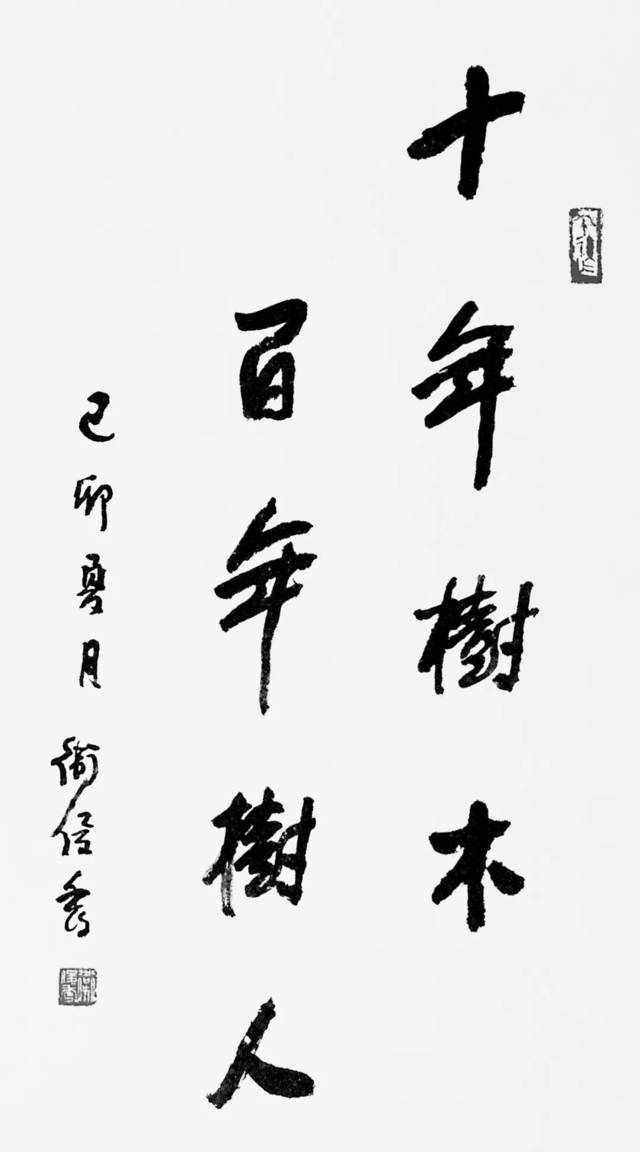 十年樹木
百年樹人
己卯夏月 衛俊秀